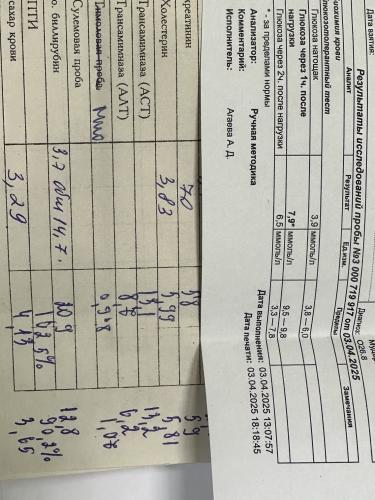 Дата взятия:
Диагноз: О26.8
Результаты исследований пробы №3 000 719 917 от 03.04.2025
Биохимия крови
Глюкозотолерантный тест
Аналит Результат Ед.изм. Пределы Замечания
Глюкоза натощак 3,9 ммоль/л 3,8 – 6,0
Глюкоза через 1ч. после нагрузки 7,9* ммоль/л 9,5 – 9,8
Глюкоза через 2ч. после нагрузки 6,5 ммоль/л 3,3 – 7,8
* - за пределами нормы
Анализатор: Ручная методика
Комментарий:
Исполнитель: Агаева А. Д.
Дата выполнения: 03.04.2025 13:07:57
Дата печати: 03.04.2025 18:18:45
креатинин 70 58 59
Холестерин 3,83 5,99 5,81
Трансаминаза (АСТ) 13,1 13,2
Трансаминаза (АЛТ) 8,6 6,2
Тимоловая проба 0,928 1,07
Сулемовая проба
о. биллирубин 3,7 общ 14,7. 20,9 12,8
ПТИ 102,5% 90,2%
сахар крови 3,29 4,13 3,65